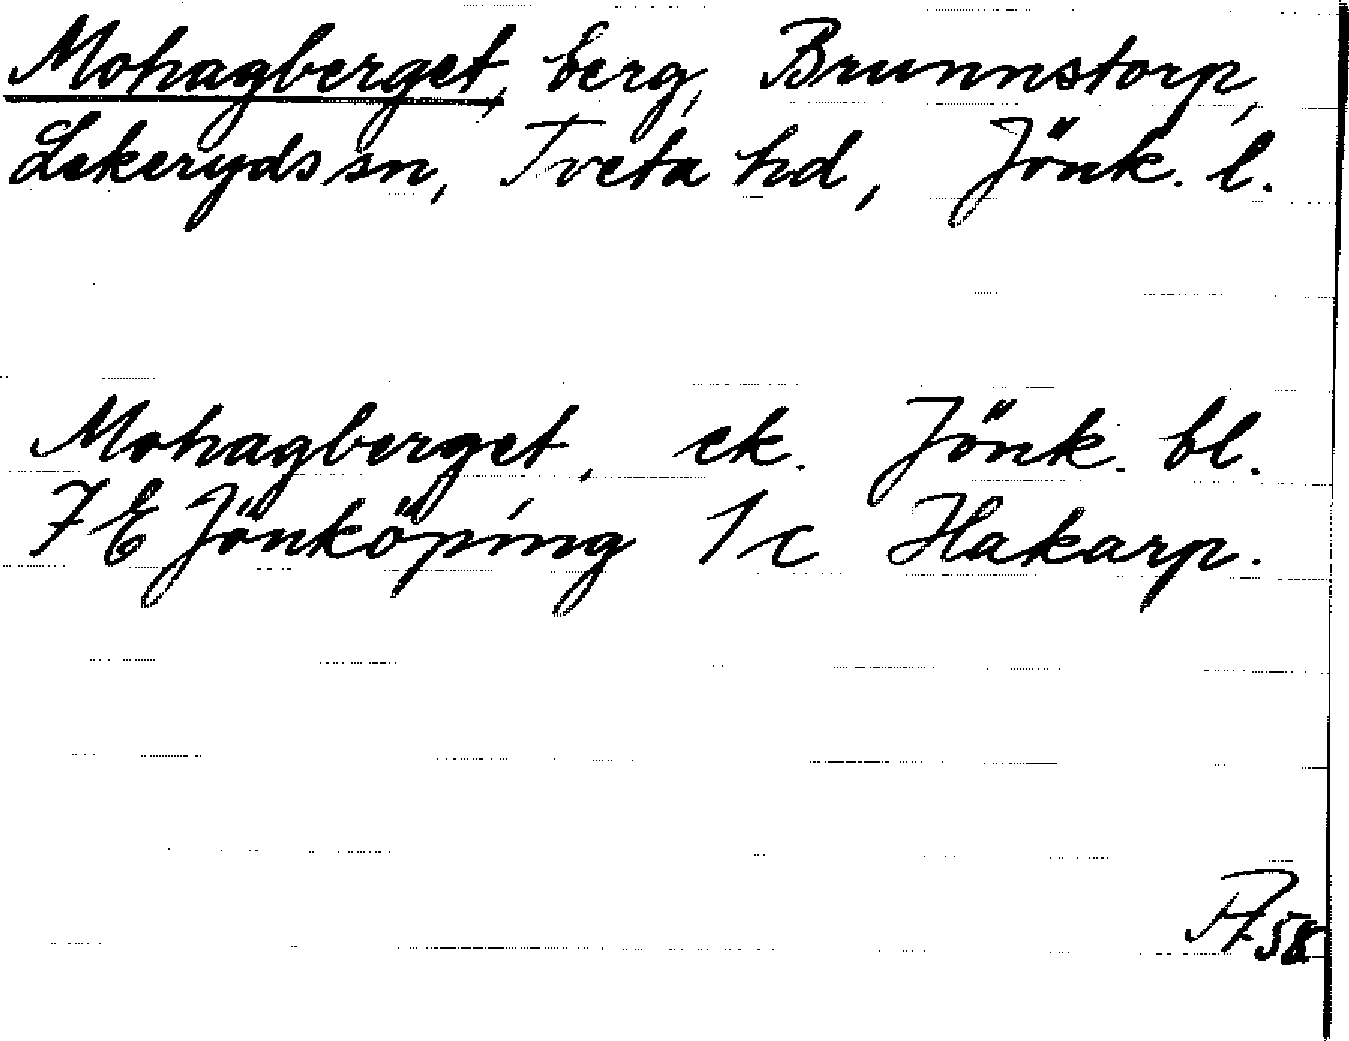 Mohagberget, berg, Brunnstorp,
Lekeryds sn, Tveta hd, Jönk. l.
Mohagberget, ek. Jönk. bl.
7E Jönköping 1c Hakarp.
58